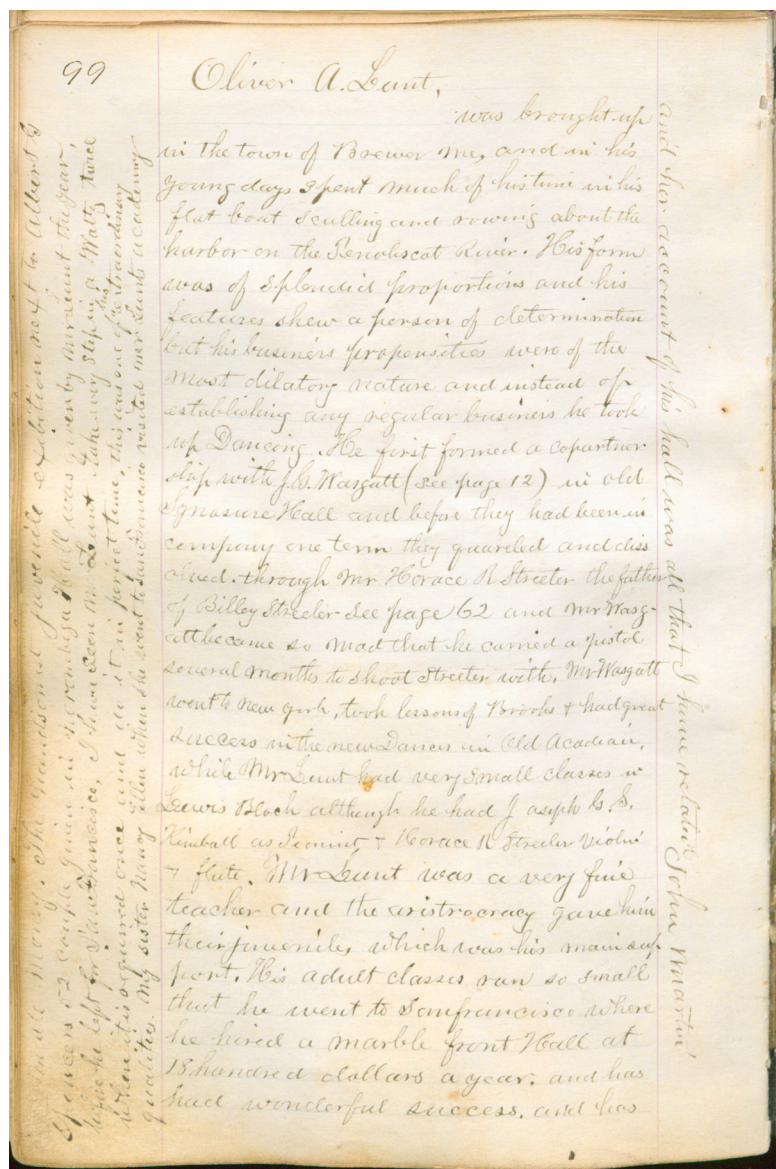 99
Oliver A. Lunt,
was brought up
in the town of Brewer Me, and in his
young days spent much of his time in his
flat boat sculling and rowing about the
harbor on the Penobscat River. His form
was of splendid proportions and his
features shew a person of determination
but his business propensities were of the
most dilatory nature and instead of
establishing any regular business he took
up Dancing. He first formed a copartner
ship with J. C. Wasgatt (see page 12) in old
Hall and before they had been in
company one term they quareled and diss
olved. through Mr Horace R Streeter the father
of Billey Streeter see page 62 and Mr Wasg-
att became so mad that he carried a pistol
several months to shoot Streeter with. Mr Wasgatt
went to New york, took lessons of Brooks & had great
success in the new Dances in Old Acadian,
while Mr Lunt had very small classes in
Lewis Block although he had Joseph G. S.
Kimball as Pianist & Horace R Streeter Violin
& flute. Mr Lunt was a very fine
teacher and the aristrocracy gave him
their juvenile, which was his main sup
port. His adult classes ran so small
that he went to Sanfrancisco where
he hired a marble front Hall at
18 hundred dollars a year. and has
had wonderful success. and has
made money. The handsomest juvenile exibition next to Albert G
Spencers 52 couple, given in Norombega Hall was given by Mr Lunt the year,
before he left for San Francisco. I have seen Mr Lunt take every step in a Waltz twice
when it is required once and do it in perfect time, this was one of his extraordinary
qualities. My sister Nancy Ellen when she went to San Francisco visited Mr Lunts academy
and her account of his hall was all that I have related John Martin